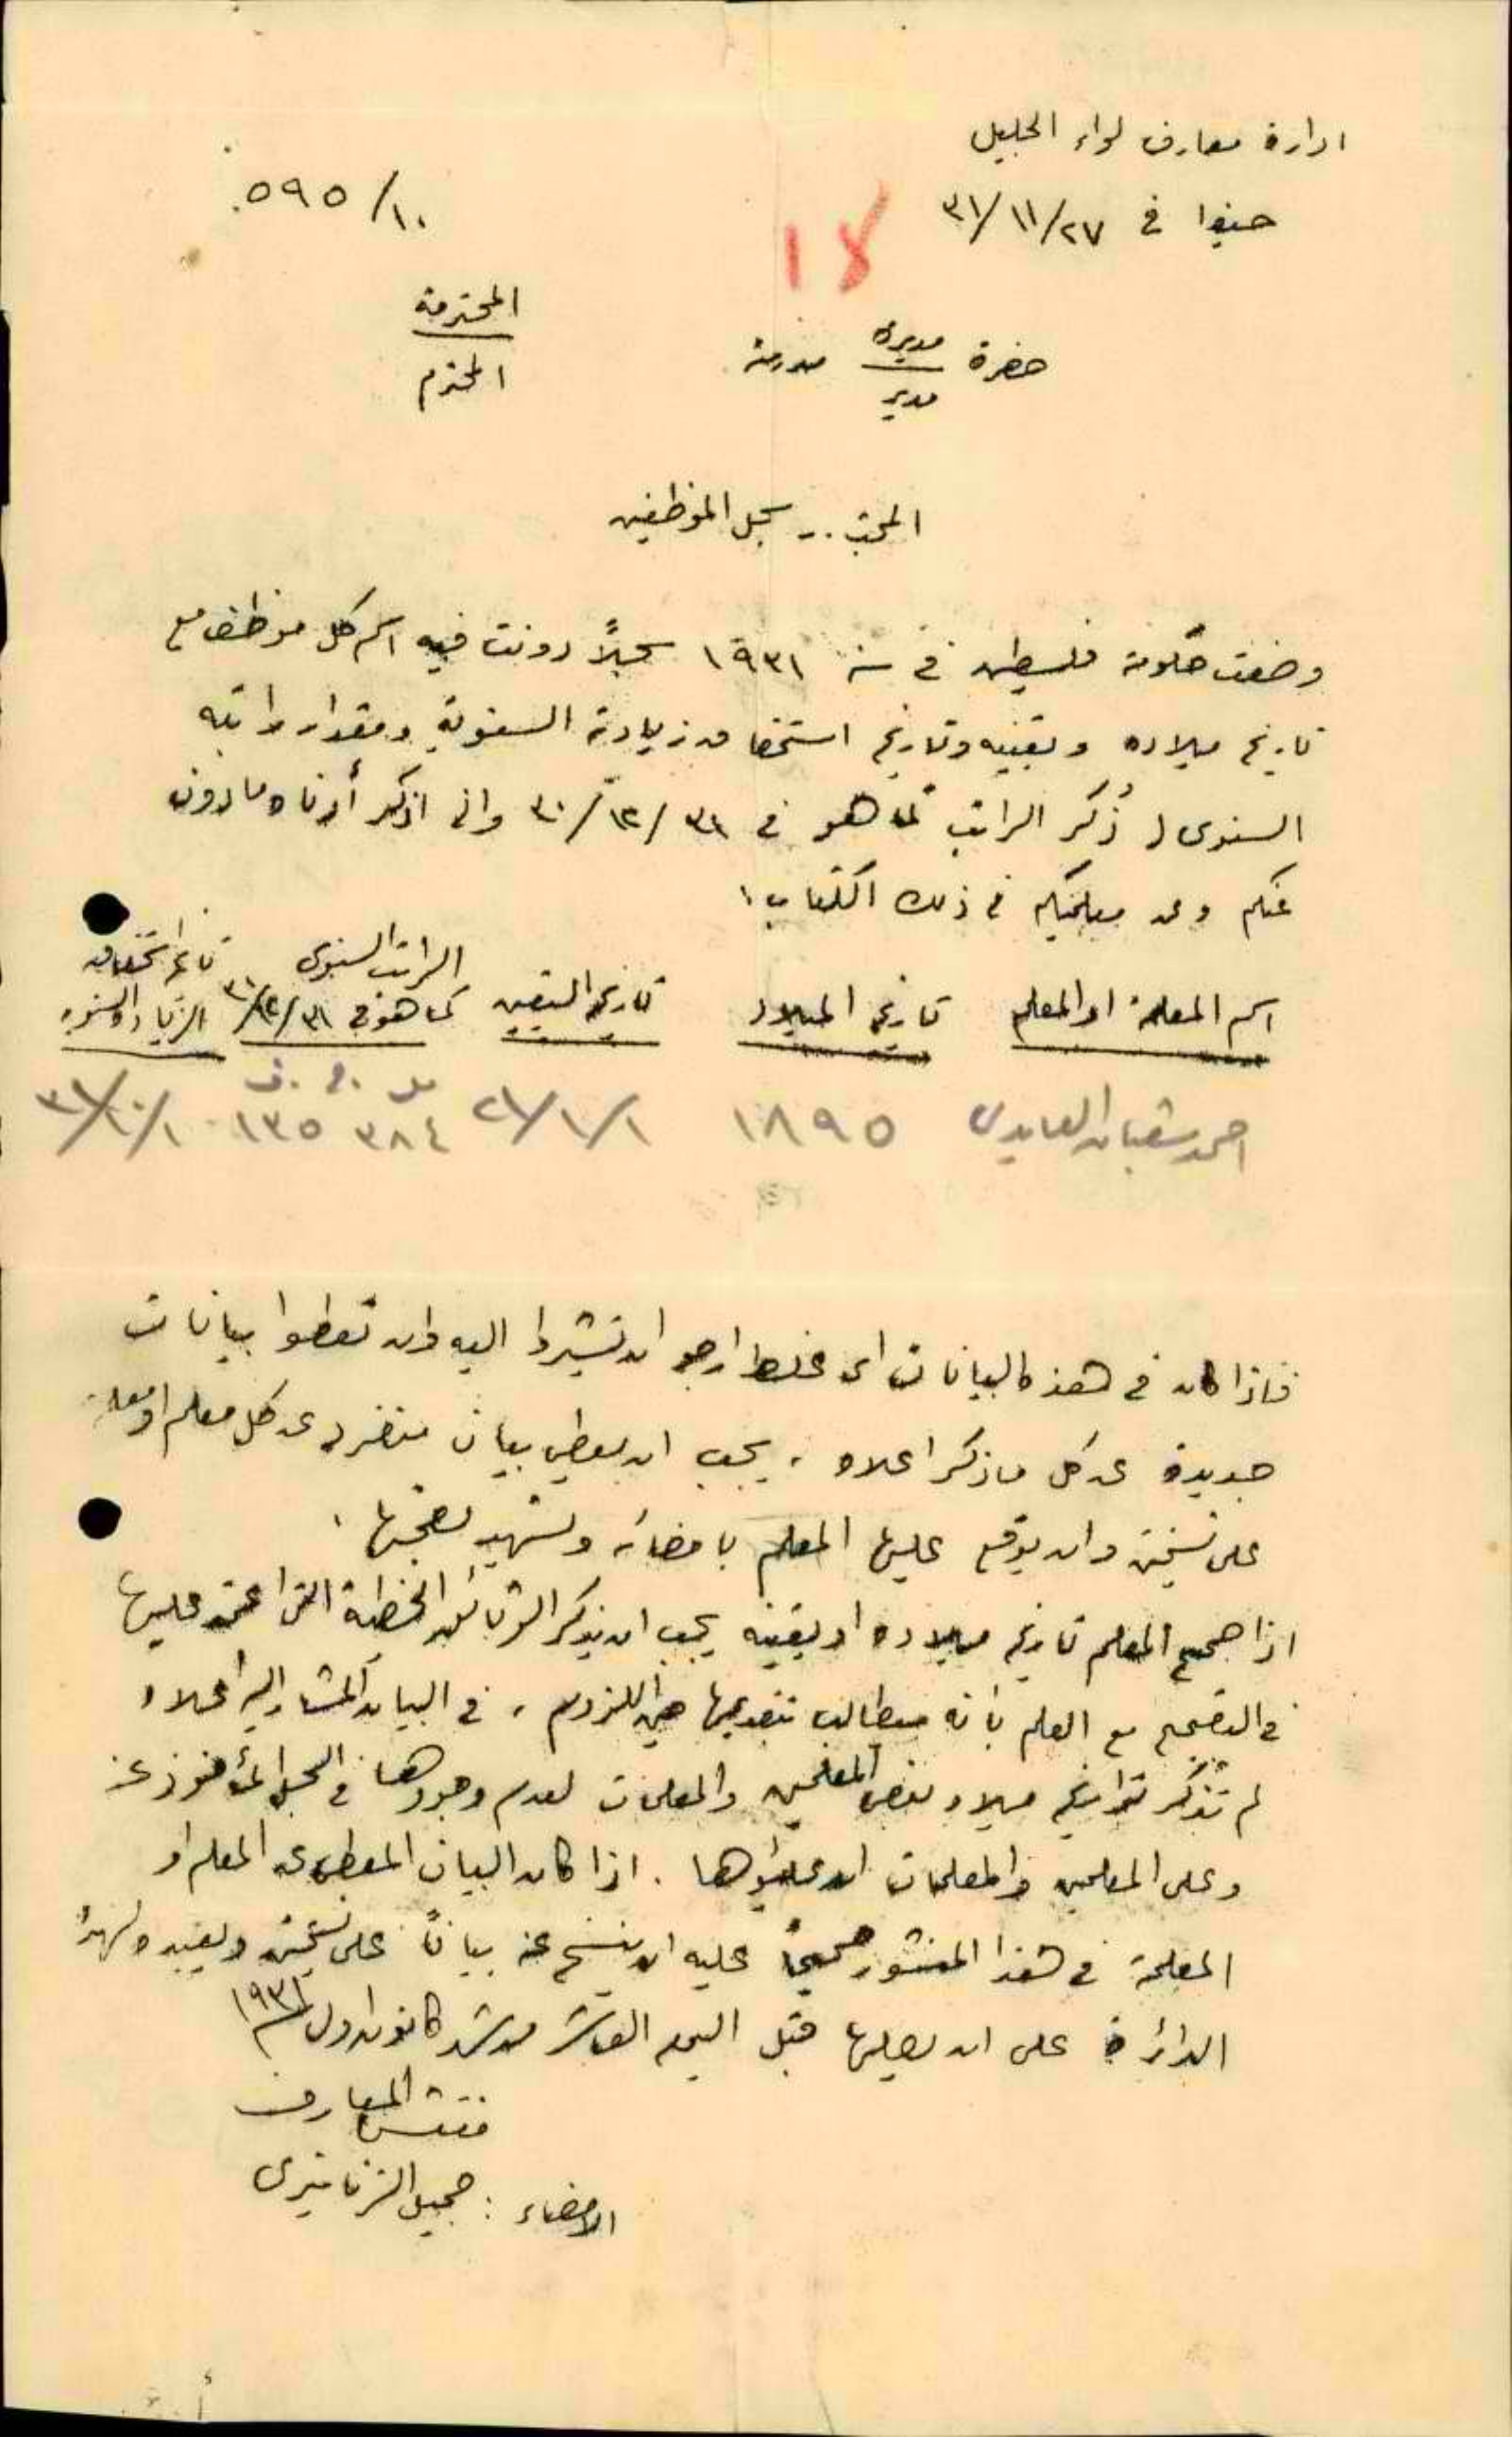 ادارة معارف لواء الجليل
حيفا في ٢٧/١١/٣١
١٠/٥٩٥
١٨
حضرة مديرة مدرسة المحترمة
مدير المحترم
المبحث .. سجل الموظفين
وضعت حكومة فلسطين في سنة ١٩٣١ سجلاً دونت فيه اسم كل موظف مع
تاريخ ميلاده وتعيينه وتاريخ استحقاقه زيادته السنوية ومقدار راتبه
السنوى ( ذُكر الراتب كما هو في ٣١/١٢/٣٠ وانى اذكر أدناه ما دون
عنكم وعن معلميكم في ذلك الكتاب .
اسم المعلمة او المعلم تاريخ الميلاد تاريخ التعيين الراتب السنوى كما هو في ٣١/١٢/٣٠ تاريخ استحقاقه الزيادة السنوية
مل . ج . ف
احمد شعبان العابدى ١٨٩٥ ١/١/٢١ ٣٨٤ ١٣٥ ١/١٠/٣١
فاذا كان في هذه البيانات اى غلط ارجو ان تشيروا اليه وان تعطوا بيانات
جديدة عن كل ما ذكر اعلاه ، يجب ان يعطى بيان منفرد عن كل معلم او معلمة
على نسختين وان يوقع عليها المعلم بامضائه وتشهد بصحتها .
اذا صحح المعلم تاريخ ميلاده او تعيينه يجب ان يذكر الوثائق الخطية التى اعتمد عليها
في التصحيح مع العلم بأنه سيطالب بتقديمها حين اللزوم ، في البيان المشار اليه اعلاه
لم تُذكر تواريخ ميلاد بعض المعلمين والمعلمات لعدم وجودها في السجل المأخوذ عنه
وعلى المعلمين والمعلمات ان يملئوها . اذا كان البيان المعطى عن المعلم او
المعلمة في هذا المنشور صحيحاً عليه ان ينسخ عنه بياناً على نسختين ويعيده لهذه
الدائرة على ان يصلها قبل اليوم العاشر من شهر كانون اول سنة ١٩٣١
مفتش المعارف
الامضاء : جميل الزنانيرى